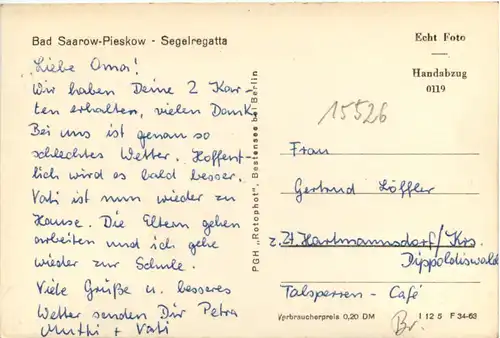 Bad Saarow-Pieskow - Segelregatta
Liebe Oma!
Wir haben Deine 2 Kar-
ten erhalten, vielen Dank.
Bei uns ist genau so
schlechtes Wetter. Hoffent-
lich wird es bald besser.
Vati ist nun wieder zu
Hause. Die Eltern gehen
arbeiten und ich gehe
wieder zur Schule.
Viele Grüße u. besseres
Wetter senden Dir Petra
Mutti + Vati
PGH „Rotophot", Bestensee bei Berlin
Echt Foto
Handabzug
0119
15526
Frau
Gertrud Löffler
z. Zt. Hartmannsdorf/Krs.
Dippoldiswalde
Talsperren - Café
Verbraucherpreis 0,20 DM
Br.
I 12 5 F 34-63